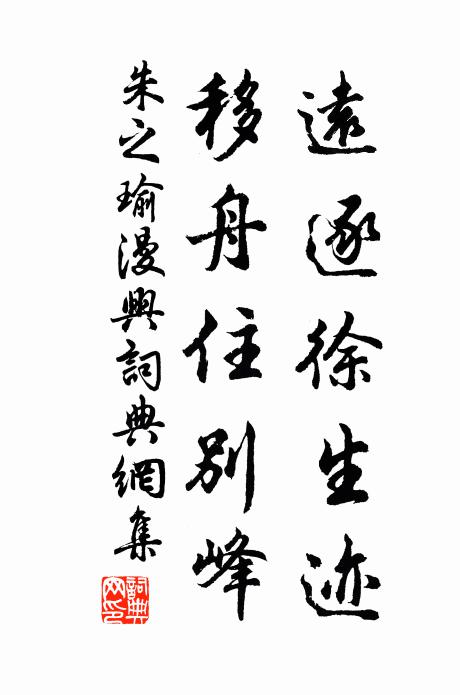 遠逐徐生迹
移舟住別峰
朱之瑜漫興詞典網集
詞典網印